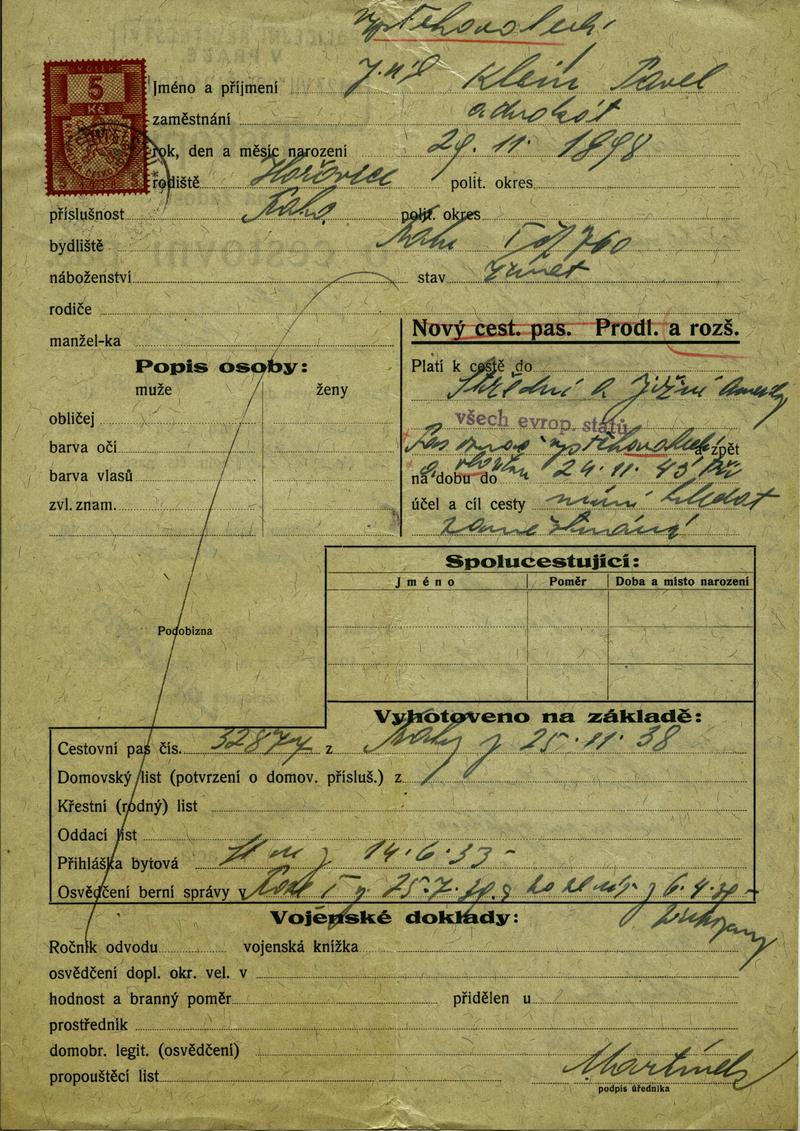 vystěhovalecký
KOLEK
5
Kč
Jméno a příjmení Klein Pavel
zaměstnání advokát
rok, den a měsíc narození 29. 11. 1898
rodiště Hořovice polit. okres
příslušnost Praha polit. okres
bydliště Praha I 760
náboženství stav ženat
rodiče
manžel-ka
Nový cest. pas. Prodl. a rozš.
Popis osoby:
muže ženy
obličej
barva očí
barva vlasů
zvl. znam.
Platí k cestě do
Střední a Jižní Ameriky
všech evrop. států
Pas vystěhovalecký a zpět
na dobu do 24. 11. 43
účel a cíl cesty míní hledat
zaměstnání
Podobizna
Spolucestující:
Jméno Poměr Doba a místo narození
Vyhotoveno na základě:
Cestovní pas čís. 32874 z Prahy z 25. 11. 38
Domovský list (potvrzení o domov. přísluš.) z
Křestní (rodný) list
Oddací list
Přihláška bytová z 14. 6. 33 -
Osvědčení berní správy v I z 25. 7. z 6. 4.
Vojenské doklady:
Ročník odvodu vojenská knížka
osvědčení dopl. okr. vel. v
hodnost a branný poměr přidělen u
prostředník
domobr. legit. (osvědčení)
propouštěcí list
Martínek
podpis úředníka